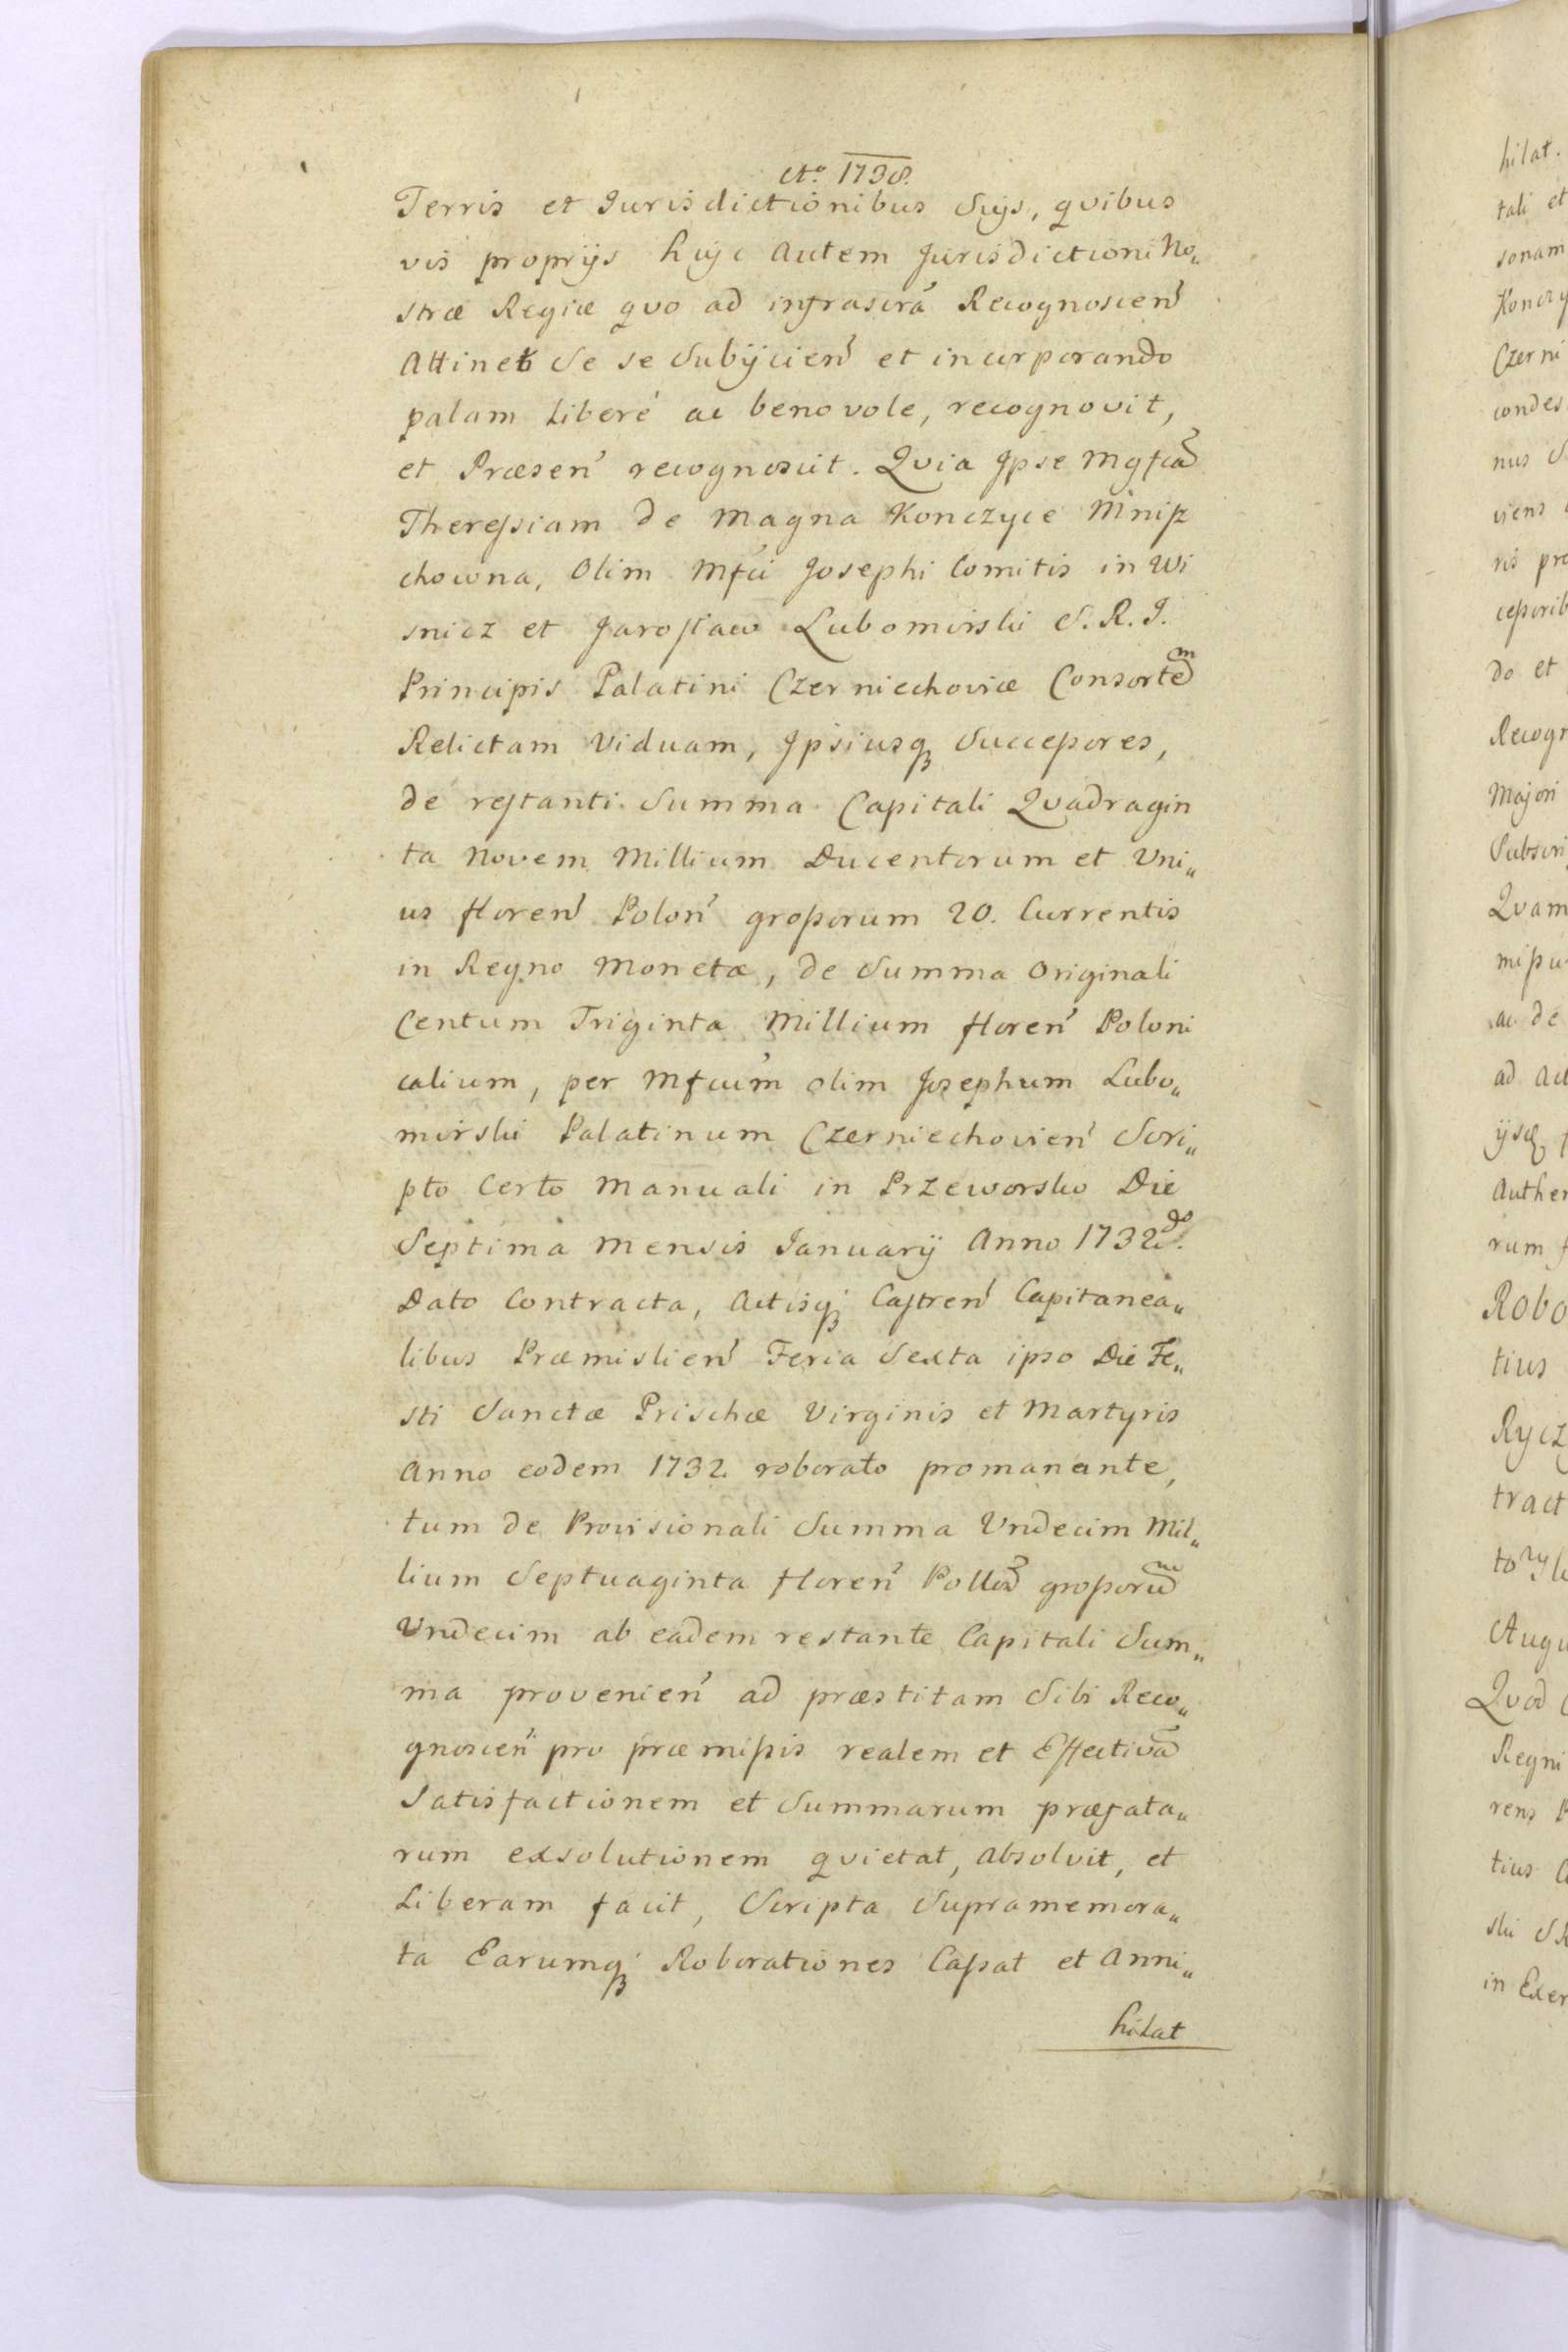 Ao 1738.
Terris et Jurisdictionibus Suys, qvibus
vis proprijs huic Autem Jurisdictioni No„
stræ Regiæ qvo ad infrascra Recognoscen
Attinet Se se Subijcien et incorporando
palam Liberé ac benovole, recognovit,
et Præsen recognoscit. Qvia Ipse Mgfcã
Theressiam de Magna Konczyce Mnisz
chowna, Olim Mfci Josephi Comitis in Wi
snicz et Jarosław Lubomirski S. R. J.
Principis Palatini Czerniechoviæ Consortem
Relictam Viduam, Ipsiusq Successores,
de restanti Summa Capitali Qvadragin
ta Novem Millium Ducentorum et Uni„
us floren Polon grossorum 20. Currentis
in Regno Monetæ, de Summa Originali
Centum Triginta Millium floren Poloni
calium, per Mfcum olim Josephum Lubo„
mirski Palatinum Czerniechovien Scri„
pto Certo Manuali in Przeworsko Die
Septima Mensis Januarij Anno 1732do.
Dato Contracta, Actisq Castren Capitanea„
libus Præmislien Feria Sexta ipso Die Fe„
sti Sanctæ Prischæ Virginis et Martyris
Anno eodem 1732 roborato promanante,
tum de Provisionali Summa Undecim Mil„
lium Septuaginta floren Pollõ grossorum
Undecim ab eadem restante Capitali Sum„
ma provenien ad præstitam Sibi Reco„
gnoscen pro præmissis realem et Effectivã
Satisfactionem et Summarum præfata„
rum exsolutionem qvietat, absolvit, et
Liberam facit, Scripta Supramemora„
ta Earumq Roborationes Cassat et Anni„
hilat
hilat.
tali et
sonam
Czerni
nus S
ris pro
do et
Recogn
Majori
Subscri
Qvam
ac de
ad Act
Authen
rum f
Robo
tius
Rycz
tract
Augu
Qvod
Regni
rens
tius
in Exer